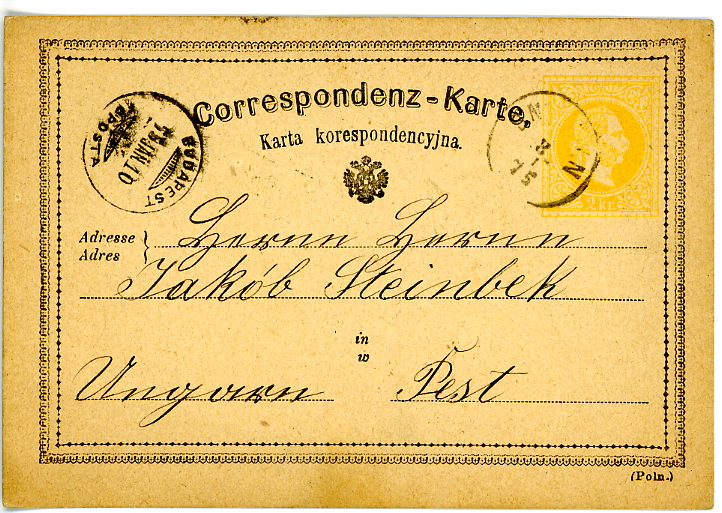 Correspondenz-Karte.
Karta korespondencyjna.
BUDAPEST
2 kr.
Adresse
Adres
Herrn Herrn
Jakób Steinbek
in
w
Ungarn Pest
(Poln.)